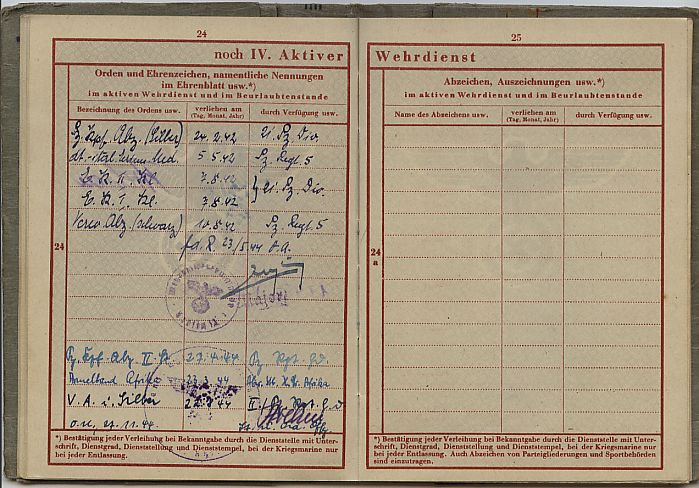 24
noch IV. Aktiver
Orden und Ehrenzeichen, namentliche Nennungen
im Ehrenblatt usw.*)
im aktiven Wehrdienst und im Beurlaubtenstande
Bezeichnung des Ordens usw. verliehen am durch Verfügung usw.
(Tag, Monat, Jahr)
Pz. Kpf. Abz. (Silber) 24.2.42 21. Pz. Div.
dt.-ital. Med. 5.5.42 Pz. Regt. 5
E. K. II. Kl. 7.8.42
E. K. I. Kl. 7.8.42 } 21. Pz. Div.
Verw. Abz. (schwarz) 10.8.42 Pz. Regt. 5
24
23/5.44
Pz. Kpf. Abz. II. St. 27.4.44 Pz. Rgt. G.D.
Ärmelband Afrika .44 Afrika
V. A. i. Silber .44 II./ Pz. Rgt. G.D
O.U., 27.11.44
*) Bestätigung jeder Verleihung bei Bekanntgabe durch die Dienststelle mit Unter-
schrift, Dienstgrad, Dienststellung und Dienststempel, bei der Kriegsmarine nur
bei jeder Entlassung.
25
Wehrdienst
Abzeichen, Auszeichnungen usw.*)
im aktiven Wehrdienst und im Beurlaubtenstande
Name des Abzeichens usw. verliehen am durch Verfügung usw.
(Tag, Monat, Jahr)
24
a
*) Bestätigung jeder Verleihung bei Bekanntgabe durch die Dienststelle mit Unter-
schrift, Dienstgrad, Dienststellung und Dienststempel, bei der Kriegsmarine nur
bei jeder Entlassung. Auch Abzeichen von Parteigliederungen und Sportbehörden
sind einzutragen.